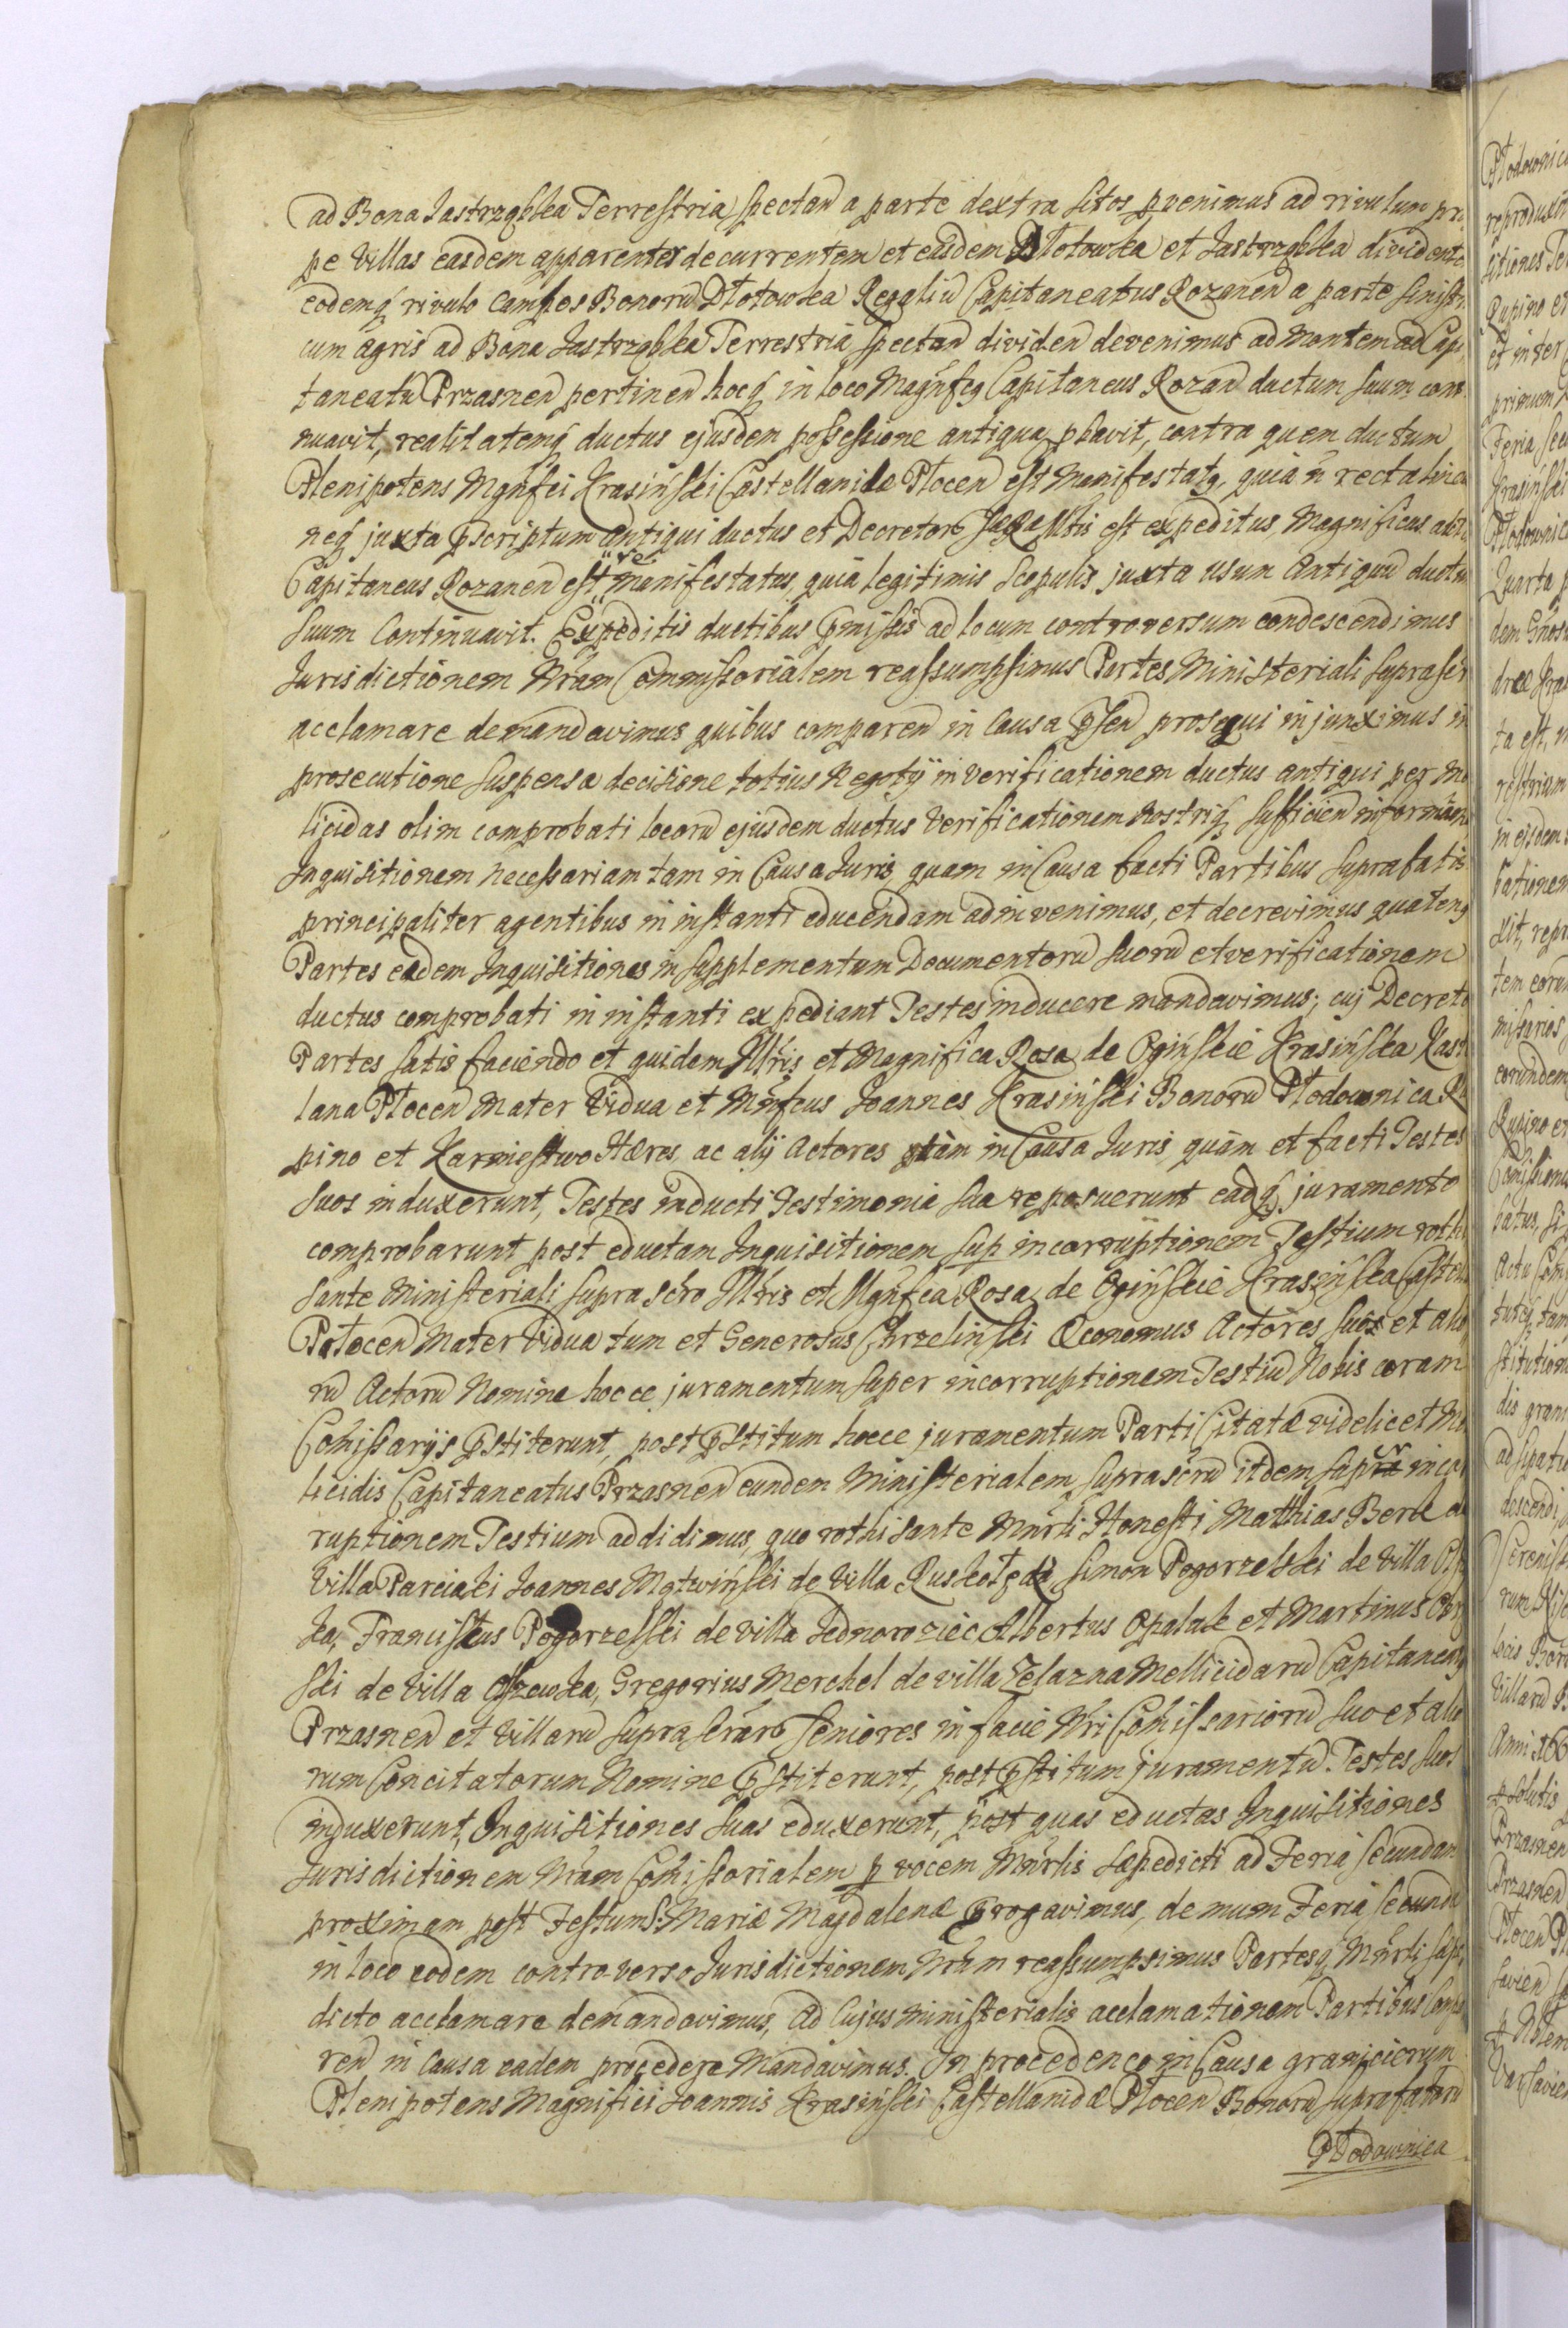 ad Bona Jastrząbka Terrestria spectan a parte dextra sitos pvenimus ad rivulum pro
pe Villas easdem apparenter decurrentem et easdem Dłotowka et Jastrząbka dividente
eodemq rivulo Campos Bonorū Dłotowka Regaliū Capitaneatus Rozanen a parte sinistr
cum agris ad Bona Jastrząbka Terrestria spectan dividen devenimus ad Montem ad Capi
taneatū Przasnen pertinen hocq in loco Magnfcq Capitaneus Rozan ductum suum conti
nuavit, realitatemq ductus ejusdem possessione antiqua pbavit, contra quem ductum
Plenipotens Mgnfci Krasinski Castellanidæ Płocen est Manifestatq, quia n recta linea
neq juxta pscriptum antiqui ductus et Decretor Sacæ Mtis est expeditus, Magnificus autē
Capitaneus Rozanen est re manifestatus, quia legitimis Scopulis juxta usum Antiquū ductū
suum Continuavit. Expeditis ductibus pmissis ad locum controversum condescendimus
Jurisdictionem Nram Commissorialem reassumpsimus Partes Ministeriali suprascr
acclamare demandavimus quibus comparen in Causa psen prosequi injunximus in
prosecutione suspensa decisione totius Negotij in verificationem ductus antiqui per Me
licidas olim comprobati locorū ejusdem ductus Verificationem Nostriq sufficien informāne
Inquisitionem necessariam tam in Causa Juris, quam in Causa facti Partibus suprafatis
principaliter agentibus in instanti educendam adinvenimus, et decrevimus quatenq
Partes eædem Inquisitiones in supplementum Documentorū suorū et verificationem
ductus comprobati in instanti expediant Testes inducere mandavimus; cuj Decreto
Partes satisfaciendo et quidem Illris et Magnifica Rosa de Oginskie Krasinska Kast
lana Płocen Mater Vidua et Mnfcus Joannes Krasinski Bonorū Płodownica Ru
pino et Karniestwo Hæres, ac alij Actores tàm in Causa Juris, quàm et facti Testes
suos induxerunt, Testes inducti Testimonia sua reposuerunt eadq juramento
comprobarunt post eductam Inquisitionem sup incorruptionem Testium rothi
sante Ministeriali suprascro Illris et Mgnfca Rosa de Oginskie Krasinska Castell
Płocen Mater Vidua tum et Generosus Chrzelinski Œconomus Actores suo et alio
rū Actorū Nomine hocce juramentum super incorruptionem Testiū Nobis coram
Comissarijs pstiterunt, post pstitum hocce juramentum Parti Citatæ videlicet Me
licidis Capitaneatus Przasnen eundem Ministerialem suprascrū itdem super incor
ruptionem Testium addidimus, quo rothisante Mnrli Honesti Matthias Berk de
Villa Parciaki Joannes Mątwinski de Villa Ruskołęka Simon Pogorzelski de Villa
ka, Franciscus Pogorzelski de Villa Jednorozíec Albertus Opalak et Martinus
ski de Villa Olszewka, Gregorius Merchel de villa Zelazna Mellicidarū Capitaneatq
Przasnen et Villarū suprascrar Seniores in facie Nri Comissariorū suo et alio
rum Concitatorum Nomine pstiterunt, post pstitum juramentū Testes suos
induxerunt, Inquisitiones suas eduxerunt, post quas eductas Inquisitiones
Jurisdictionem Nram Comissorialem p vocem Mnrlis sæpedicti ad Feriā secundam
proximam post Festum S: Mariæ Magdalenæ prorogavimus, demum Feriā secundā
in loco eodem controverso Jurisdictionem Nram reassumpsimus Partesq Mnrli sæpe
dicto acclamare demandavimus, ad Cujus Ministerialis acclamationem Partibus Compa
ren in Causa eadem procedere Mandavimus. In procedenco in Causa granicierum
Plenipotens Magnifici Joannis Krasinski Castellanidæ Płocen Bonorū suprafatorū
Płodownica
Płodownica
reprodux
sitiones Te
Rupino et
et inter
primum
Feria sec
Krasinski
Płodownic
Quarta p
dem Gnos
dræ Kra
ta est, n
restriam
in ejsdem
bationem
xit, repr
tem eoru
misarios
eorundem
Rupino et
batus, si
Actu Com
tutq tam
stitution
dis grani
ad sipatu
descendi
Serenis
locis Bon
Villarū P
Anni 166
p solutis
Przasnen
Przasnen
Płocen Pl
Varsavien